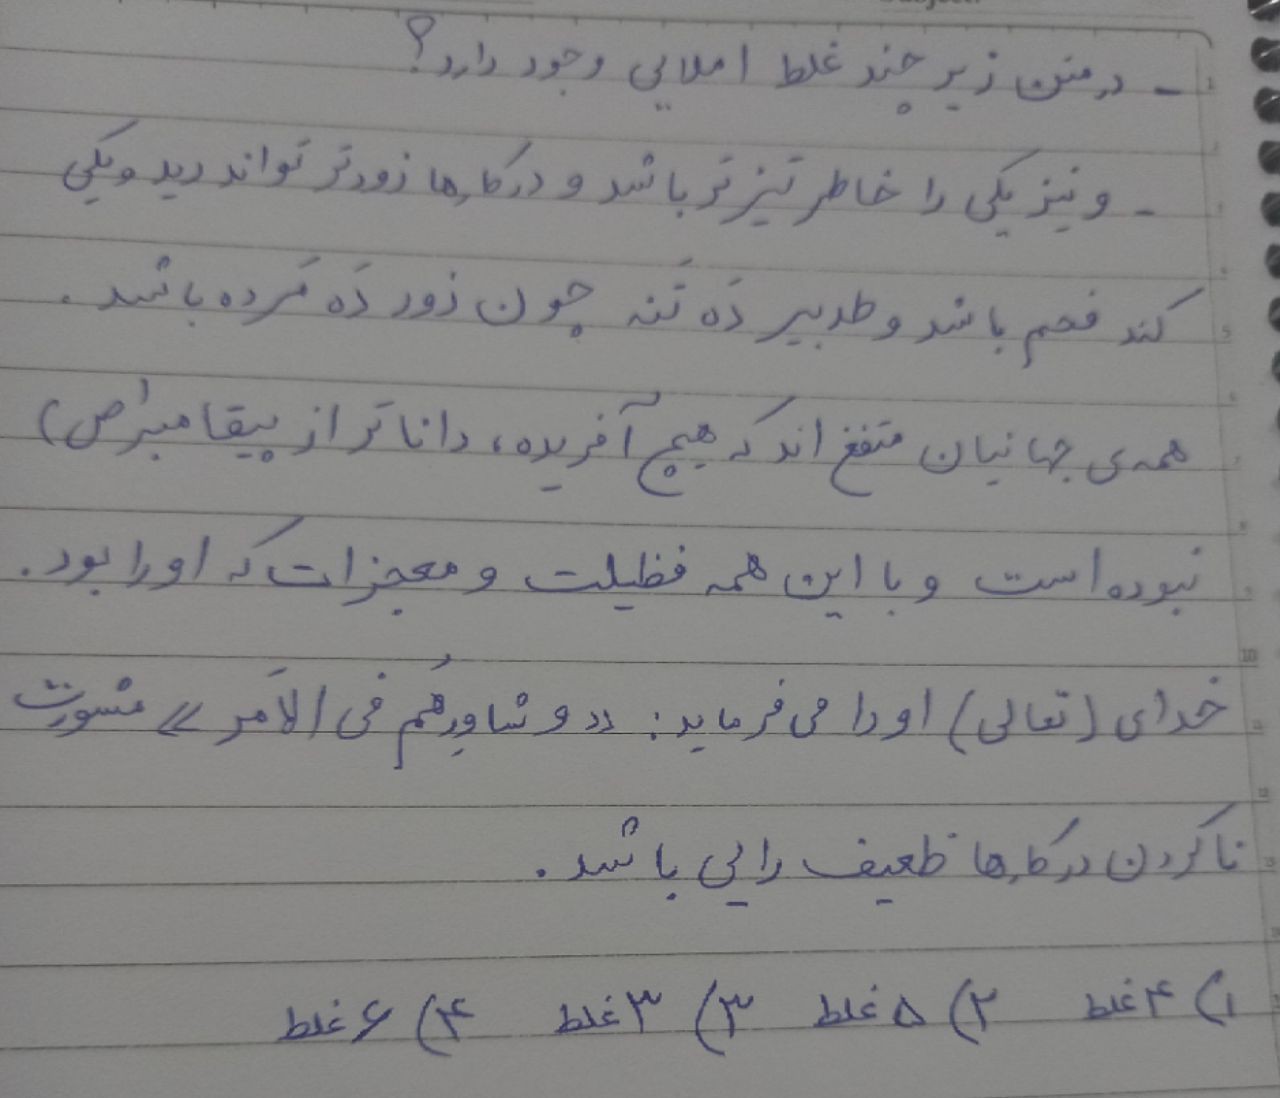 - در متن زیر چند غلط املایی وجود دارد؟
- و نیز یکی را خاطر تیزتر باشد و در کارها زودتر تواند دید و یکی
کند فحم باشد و طدبیر دَه تَنه چون زور دَه مَرده باشد.
همه‌ی جهانیان متفغ اند که هیچ آفریده، داناتر از پیقامبر(ص)
نبوده است و با این همه فظیلت و معجزات که او را بود.
خدای (تعالی) او را می‌فرماید: «و شاوِرهُم فی الاَمر» مشورت
ناکردن در کارها ظعیف رایی باشد.
۱) ۴ غلط ۲) ۵ غلط ۳) ۳ غلط ۴) ۶ غلط